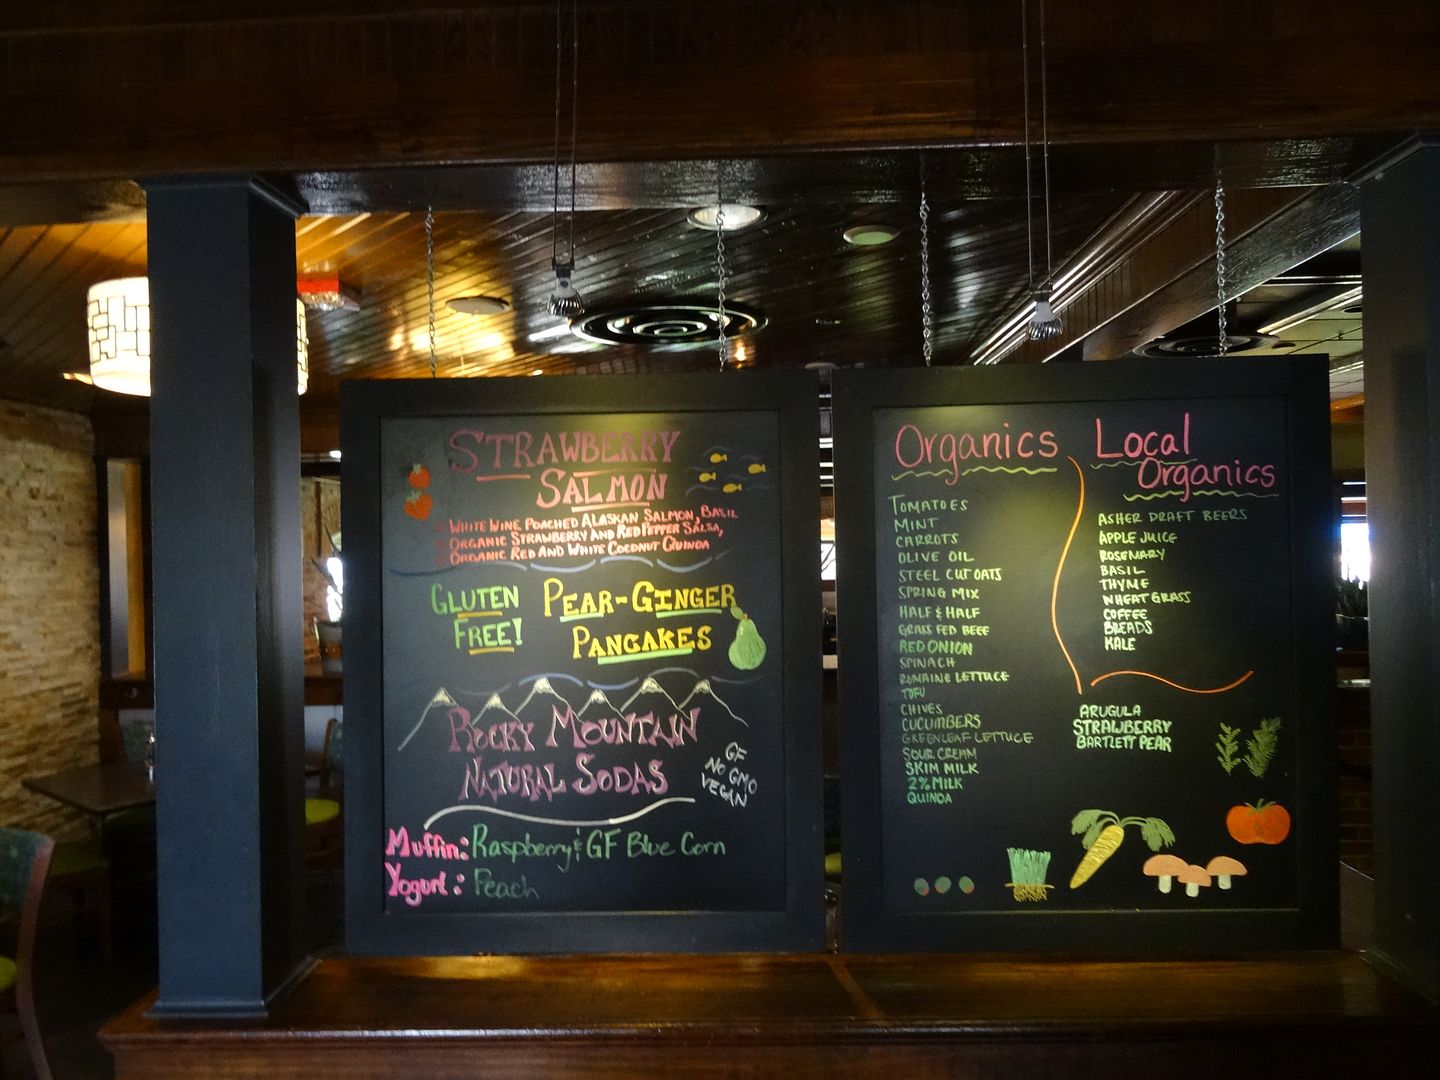 STRAWBERRY
SALMON
WHITE WINE POACHED ALASKAN SALMON, BASIL
ORGANIC STRAWBERRY AND RED PEPPER SALSA,
ORGANIC RED AND WHITE COCONUT QUINOA
GLUTEN
FREE!
PEAR-GINGER
PANCAKES
ROCKY MOUNTAIN
NATURAL SODAS
GF
NO GMO
VEGAN
Muffin: Raspberry & GF Blue Corn
Yogurt: Peach
Organics
TOMATOES
MINT
CARROTS
OLIVE OIL
STEEL CUT OATS
SPRING MIX
HALF & HALF
GRASS FED BEEF
RED ONION
SPINACH
ROMAINE LETTUCE
TOFU
CHIVES
CUCUMBERS
GREENLEAF LETTUCE
SOUR CREAM
SKIM MILK
2% MILK
QUINOA
Local
Organics
ASHER DRAFT BEERS
APPLE JUICE
ROSEMARY
BASIL
THYME
WHEAT GRASS
COFFEE
BREADS
KALE
ARUGULA
STRAWBERRY
BARTLETT PEAR